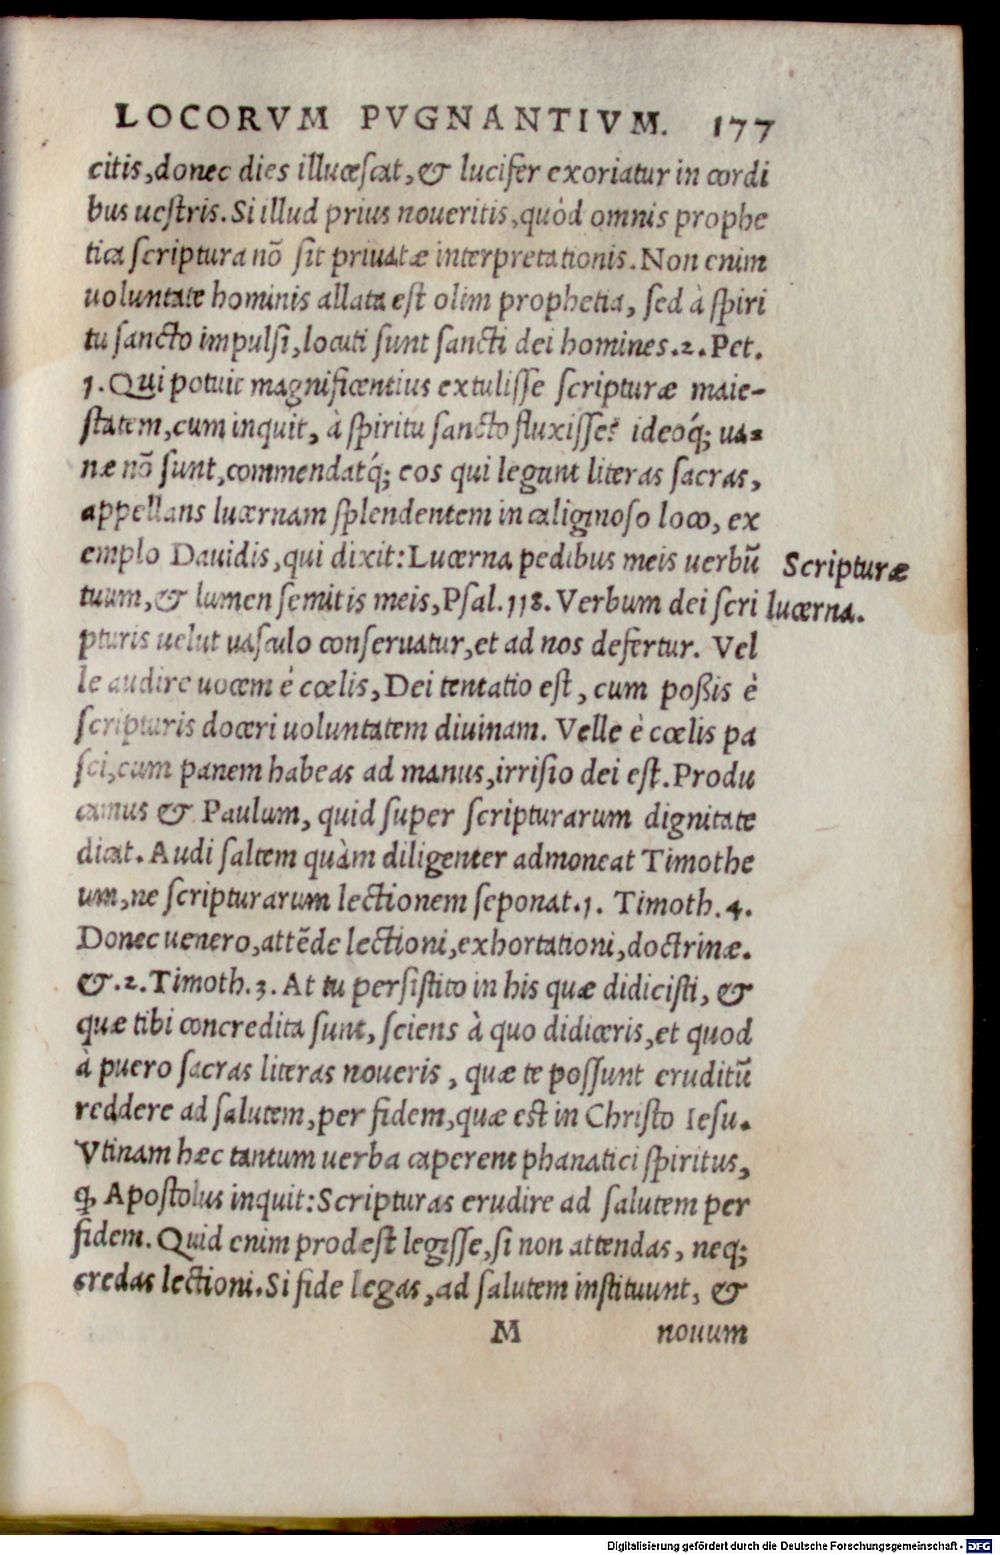 LOCORVM PVGNANTIVM. 177
citis,donec dies illucescat,& lucifer exoriatur in cordi
bus uestris. Si illud prius noueritis,quòd omnis prophe
tica scriptura nõ sit priuatæ interpretationis. Non enim
uoluntate hominis allata est olim prophetia, sed à spiri
tu sancto impulsi,locuti sunt sancti dei homines. 2. Pet.
1. Qui potuit magnificentius extulisse scripturæ maie-
statem,cum inquit, à spiritu sancto fluxisse? ideoq́; ua-
næ nõ sunt,commendatq́; eos qui legunt literas sacras,
appellans lucernam splendentem in caliginoso loco, ex
emplo Dauidis,qui dixit:Lucerna pedibus meis uerbũ
Scripturæ
tuum,& lumen semitis meis,Psal.118. Verbum dei scri
lucerna.
pturis uelut uasculo conseruatur,et ad nos defertur. Vel
le audire uocem è cœlis, Dei tentatio est, cum poßis è
scripturis doceri uoluntatem diuinam. Velle è cœlis pa
sci,cum panem habeas ad manus,irrisio dei est. Produ
camus & Paulum, quid super scripturarum dignitate
dicat. Audi saltem quàm diligenter admoneat Timothe
um,ne scripturarum lectionem seponat. 1. Timoth. 4.
Donec uenero,attẽde lectioni,exhortationi,doctrinæ.
&. 2. Timoth. 3. At tu persistito in his quæ didicisti, &
quæ tibi concredita sunt, sciens à quo didiceris,et quod
à puero sacras literas noueris, quæ te possunt eruditũ
reddere ad salutem,per fidem,quæ est in Christo Iesu.
Vtinam hæc tantum uerba caperent phanatici spiritus,
ꝙ Apostolus inquit: Scripturas erudire ad salutem per
fidem. Quid enim prodest legisse,si non attendas, neq;
credas lectioni. Si fide legas,ad salutem instituunt, &
M nouum
Digitalisierung gefördert durch die Deutsche Forschungsgemeinschaft - DFG